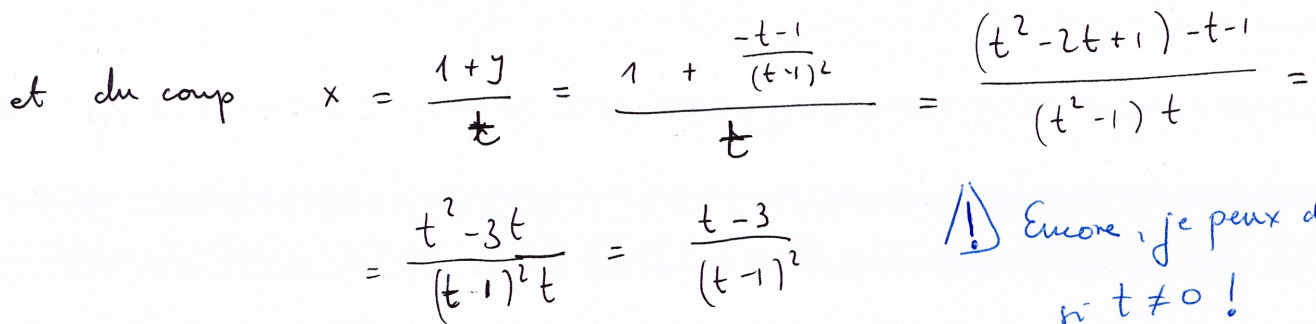 et du coup x = \frac{1+y}{t} = \frac{1 + \frac{-t-1}{(t-1)^2}}{t} = \frac{(t^2-2t+1)-t-1}{(t^2-1)t} =
= \frac{t^2-3t}{(t-1)^2 t} = \frac{t-3}{(t-1)^2}
⚠ Encore, je peux d
si t ≠ 0 !